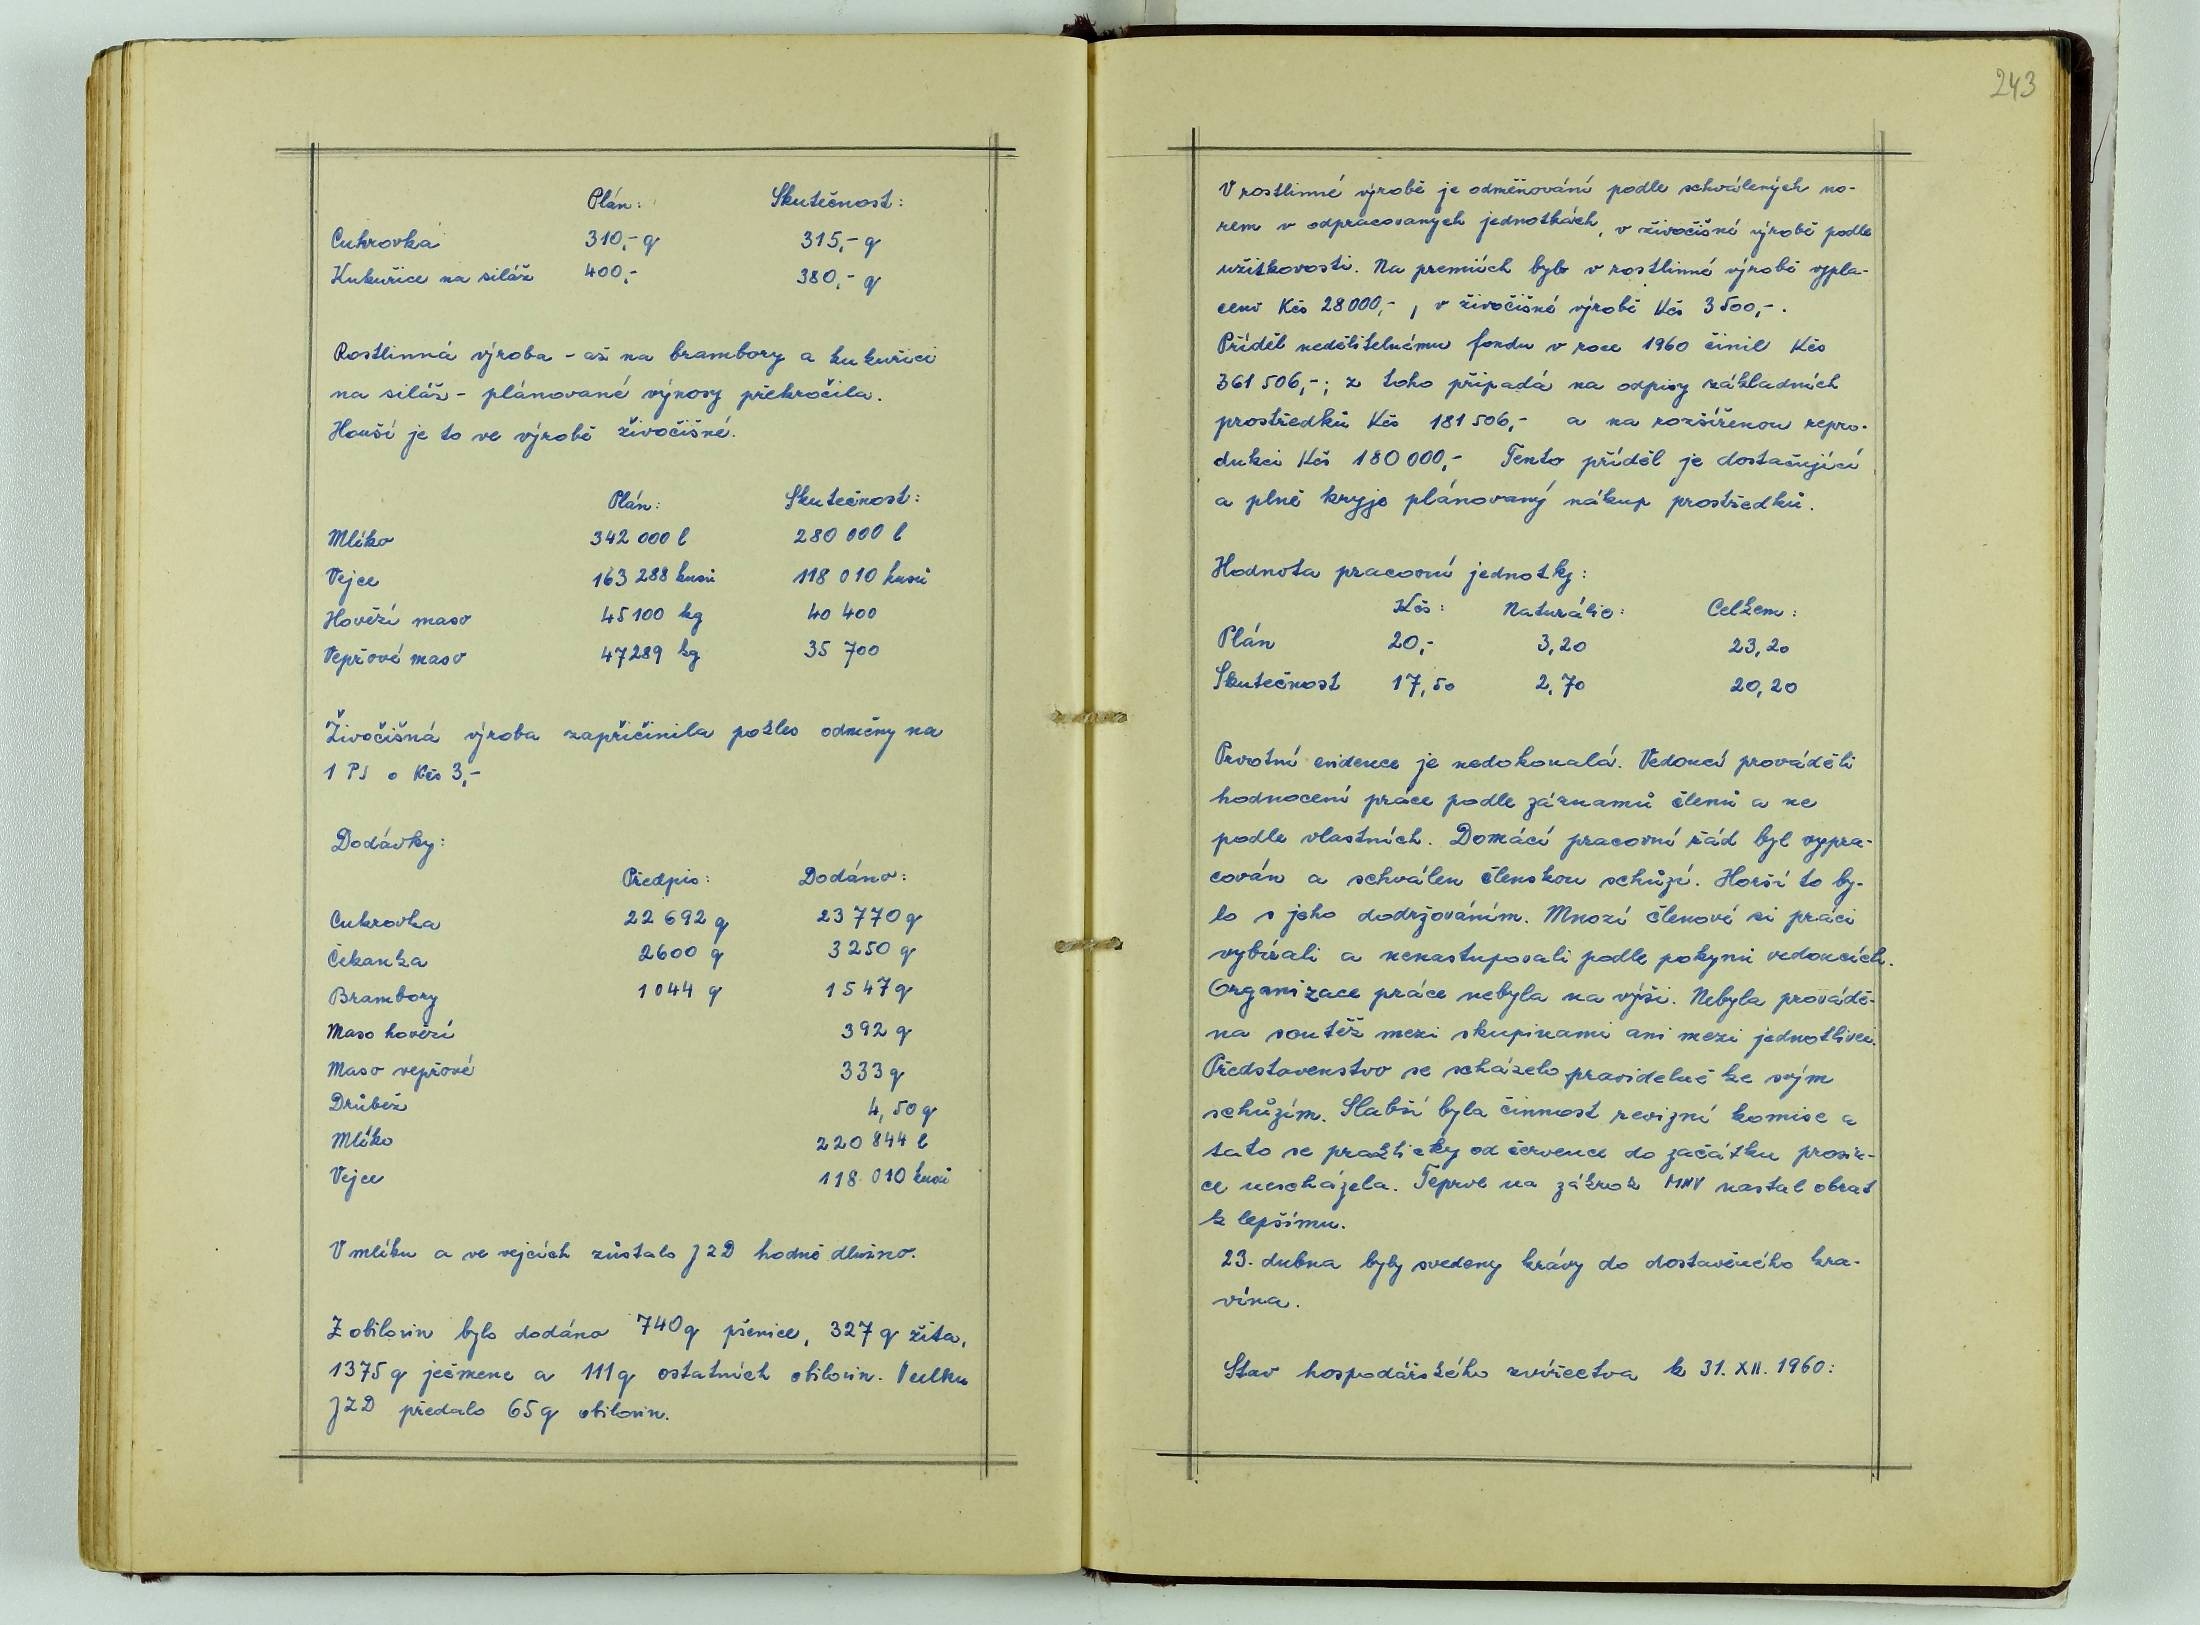 Plán: Skutečnost:
Cukrovka 310,- q 315,- q
Kukuřice na siláž 400,- 380,- q
Rostlinná výroba - až na brambory a kukuřici
na siláž - plánované výnosy překročila.
Horší je to ve výrobě živočišné.
Plán: Skutečnost:
Mléko 342 000 l 280 000 l
Vejce 163 288 kusů 118 010 kusů
Hovězí maso 45 100 kg 40 400
Vepřové maso 47289 kg 35 700
Živočišná výroba zapříčinila pokles odměny na
1 PJ o Kčs 3,-
Dodávky:
Předpis: Dodáno:
Cukrovka 22 692 q 23 770 q
Čekanka 2600 q 3250 q
Brambory 1044 q 1547 q
Maso hovězí 392 q
Maso vepřové 333 q
Drůbež 4,50 q
Mléko 220 844 l
Vejce 118 010 kusů
V mléku a ve vejcích zůstalo JZD hodně dlužno.
Z obilovin bylo dodáno 740 q pšenice, 327 q žita,
1375 q ječmene a 111 q ostatních obilovin. Vcelku
JZD předalo 65 q obilovin.
243
V rostlinné výrobě je odměňování podle schválených no-
rem v odpracovaných jednotkách, v živočišné výrobě podle
užitkovosti. Na premiích bylo v rostlinné výrobě vypla-
ceno Kčs 28000,-, v živočišné výrobě Kčs 3500,-.
Příděl nedělitelnému fondu v roce 1960 činil Kčs
361 506,-; z toho připadá na odpisy základních
prostředků Kčs 181 506,- a na rozšířenou repro-
dukci Kčs 180 000,- Tento příděl je dostačující
a plně kryje plánovaný nákup prostředků.
Hodnota pracovní jednotky:
Kčs: Naturálie: Celkem:
Plán 20,- 3,20 23,20
Skutečnost 17,50 2,70 20,20
Prvotní evidence je nedokonalá. Vedoucí prováděli
hodnocení práce podle záznamů členů a ne
podle vlastních. Domácí pracovní řád byl vypra-
cován a schválen členskou schůzí. Horší to by-
lo s jeho dodržováním. Mnozí členové si práci
vybírali a nenastupovali podle pokynů vedoucích.
Organizace práce nebyla na výši. Nebyla provádě-
na soutěž mezi skupinami ani mezi jednotlivci.
Představenstvo se scházelo pravidelně ke svým
schůzím. Slabší byla činnost revizní komise a
tato se prakticky od července do začátku prosin-
ce nescházela. Teprve na zákrok MNV nastal obrat
k lepšímu.
23. dubna byly svedeny krávy do dostavěného kra-
vína.
Stav hospodářského zvířectva k 31. XII. 1960: